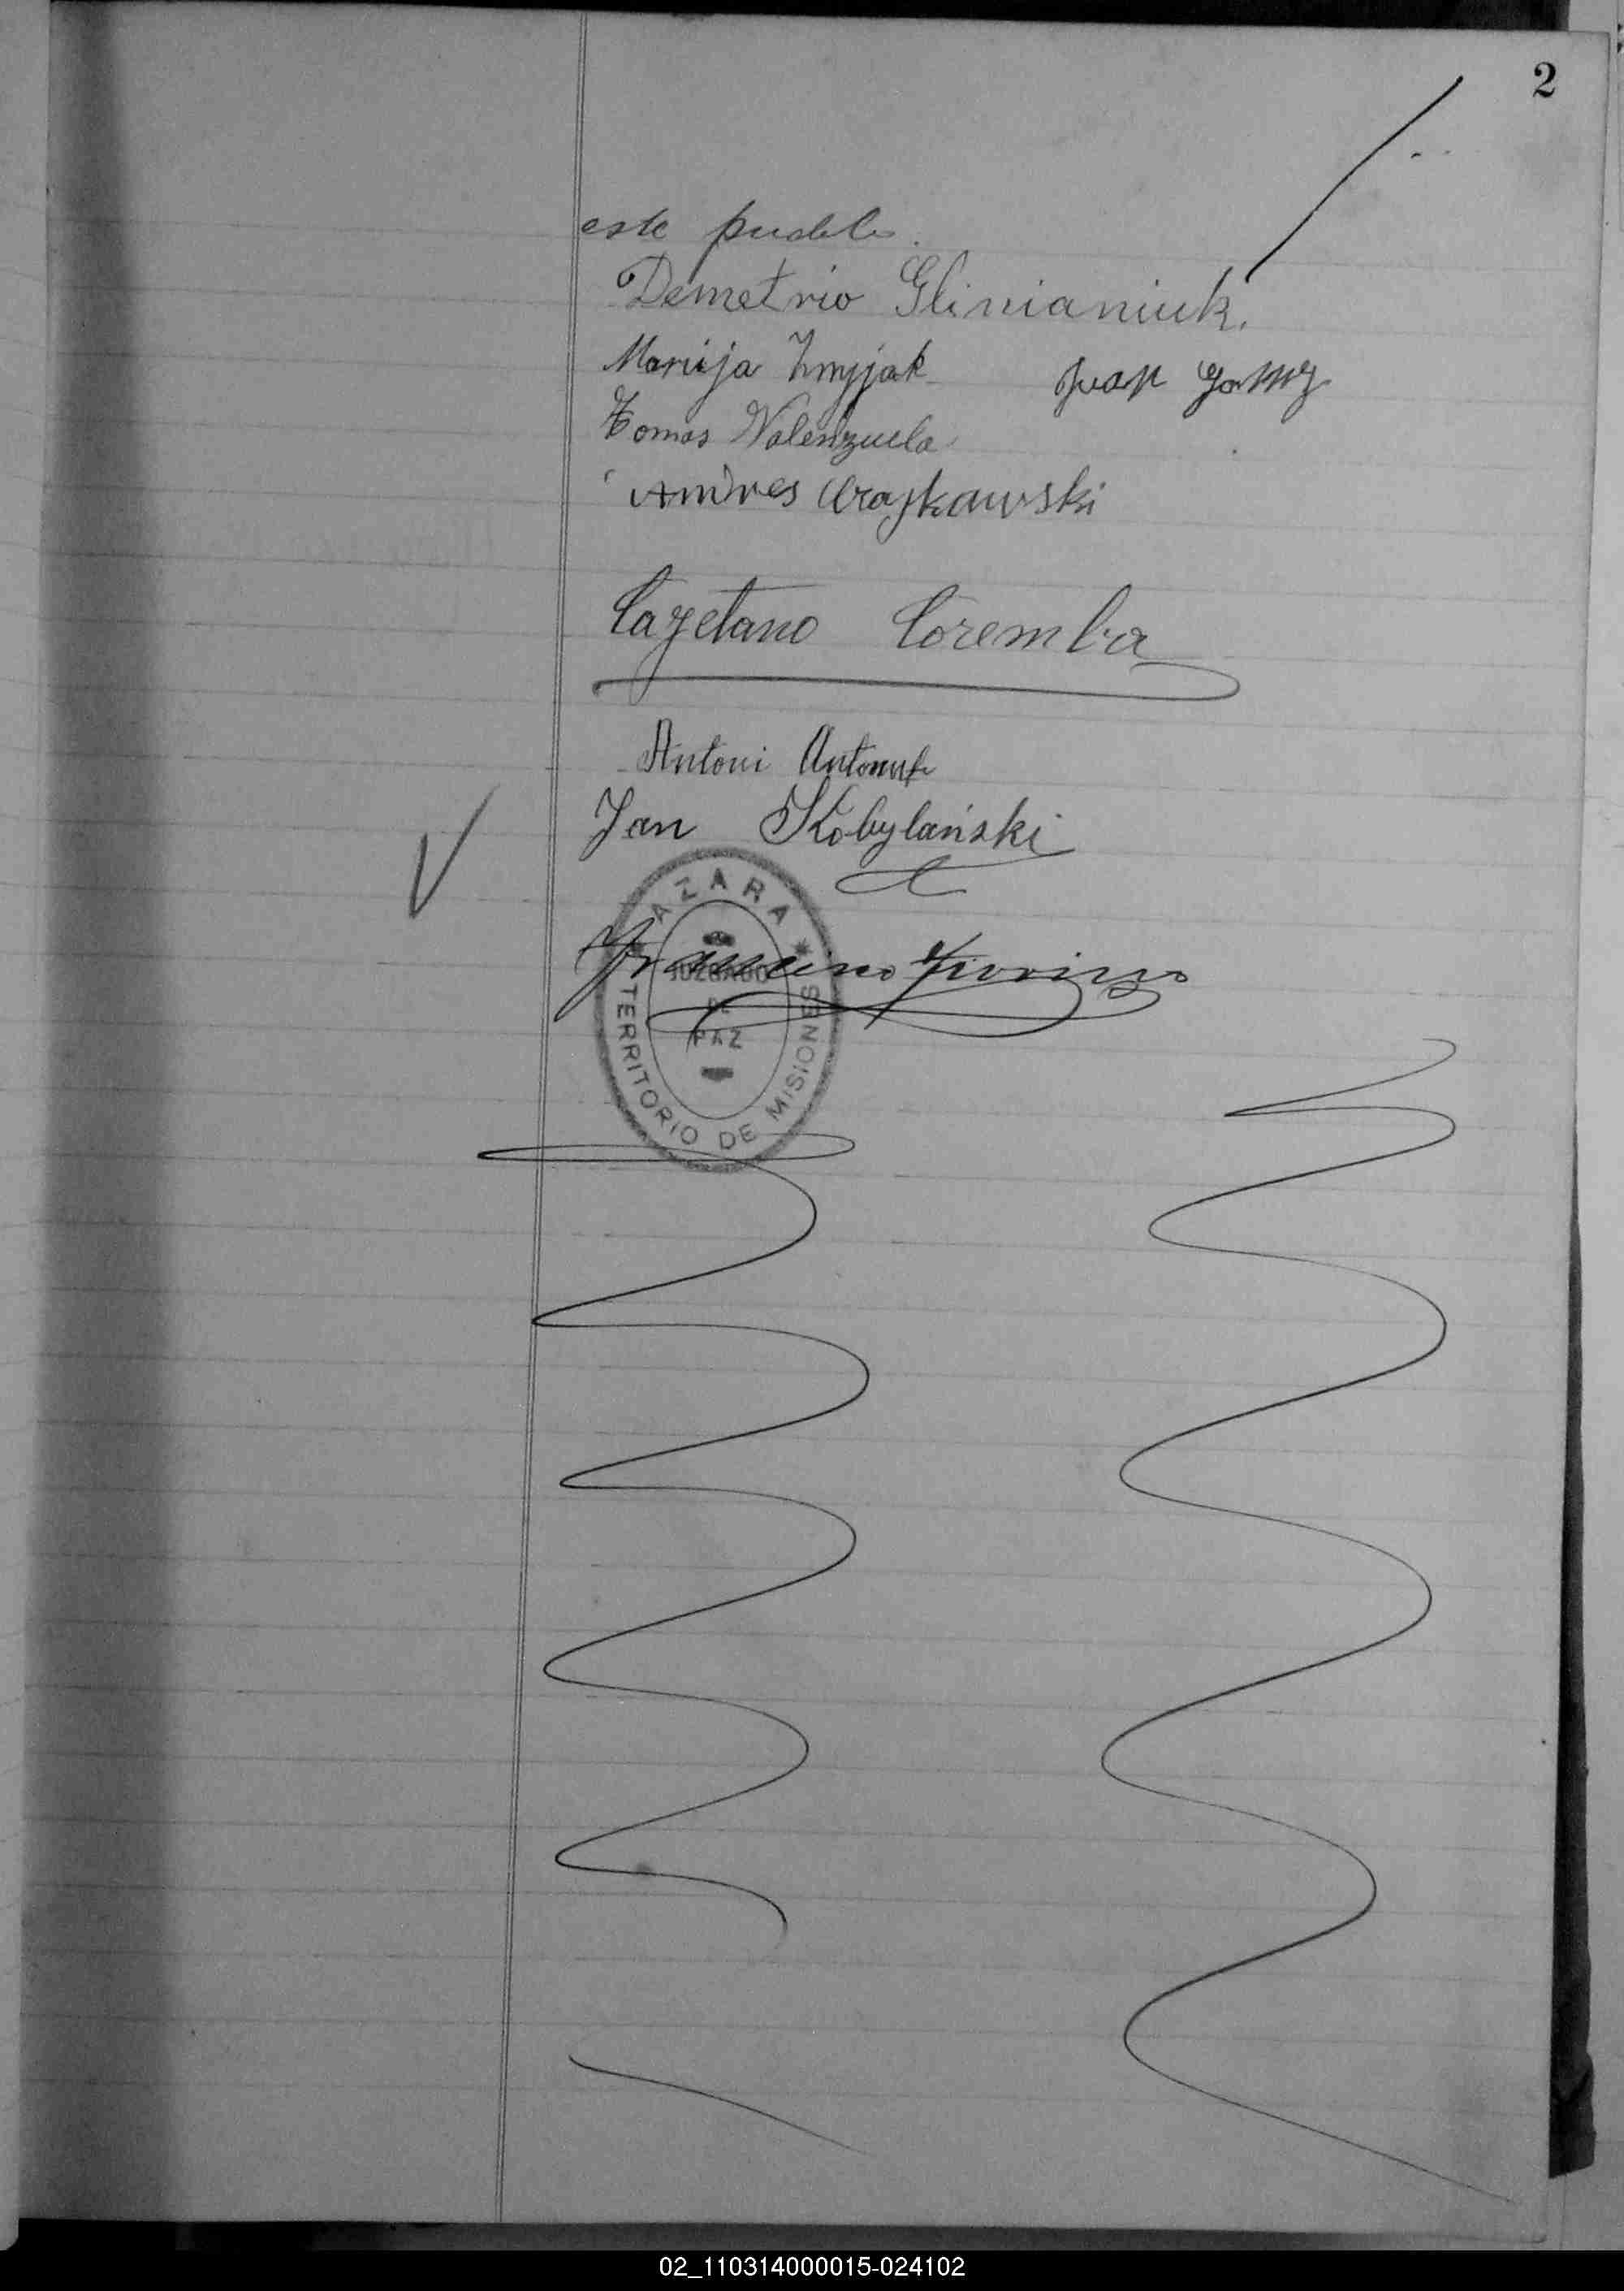 2
este pueblo.
Demetrio Glinianiuk.
Mariija Zmyjak Juan
Tomas Valenzuela
Andres Krajkawski
Cayetano Coremba
Antoni Antoniuk
Jan Kobylański
AZARA
JUZGADO
DE
PAZ
TERRITORIO DE MISIONES
02_110314000015-024102